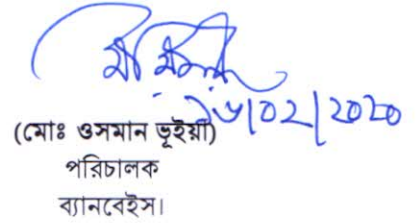 ১৬/০২/২০২০
(মোঃ ওসমান ভূইয়া)
পরিচালক
ব্যানবেইস।